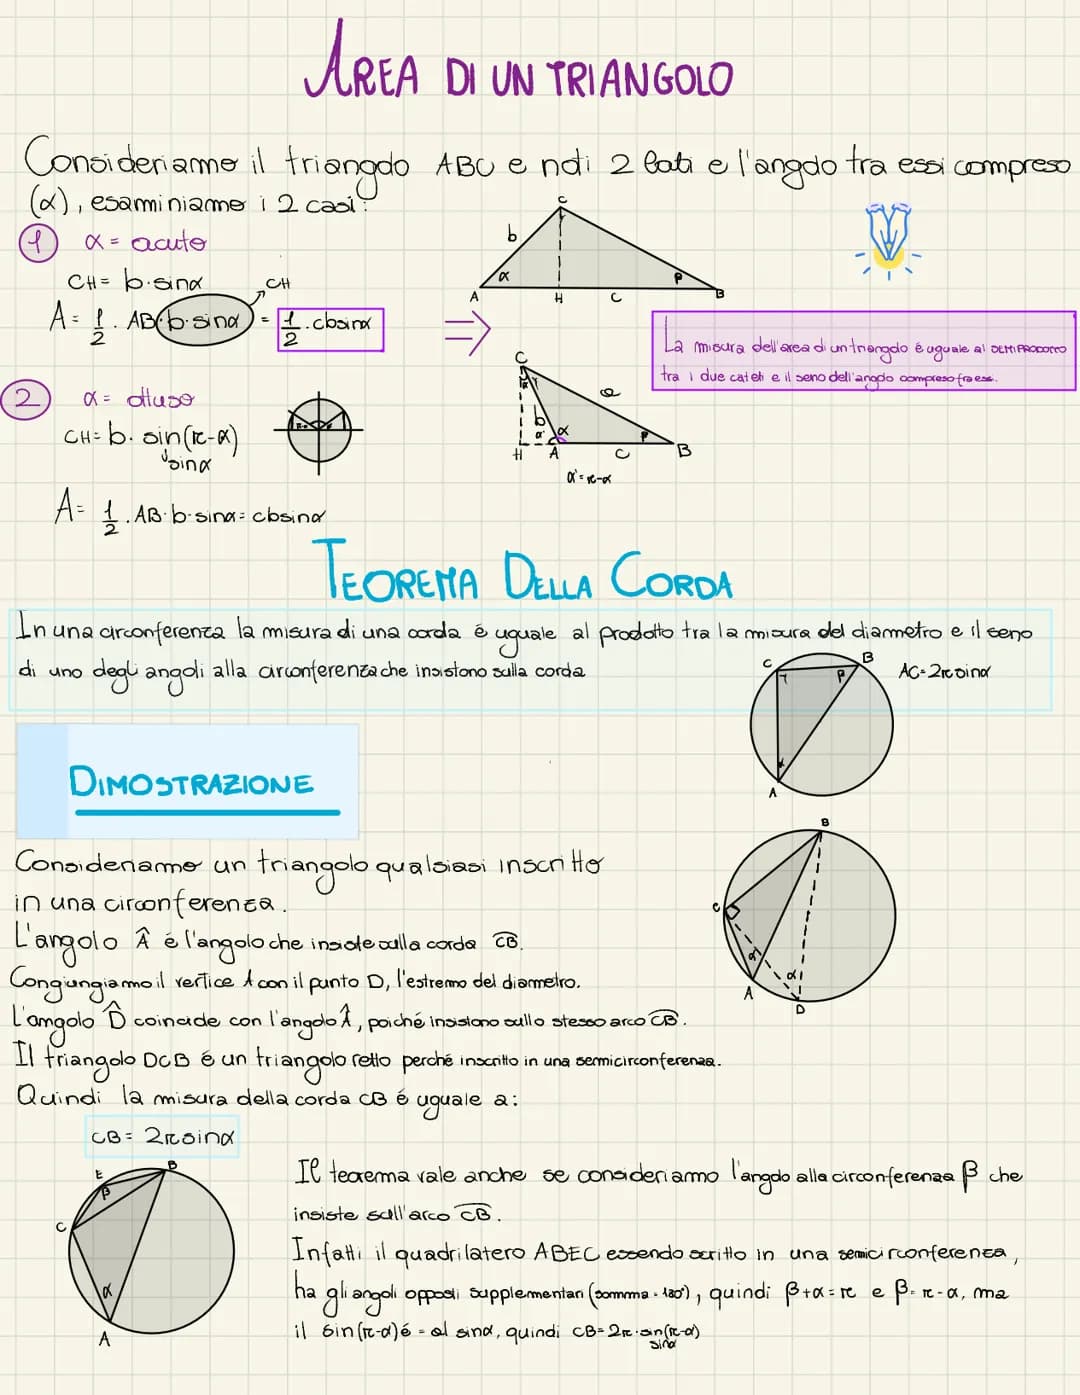 AREA DI UN TRIANGOLO
Consideriamo il triangolo ABC e noti 2 lati e l'angolo tra essi compreso
(α), esaminiamo i 2 casi:
1 α = acuto
CH = b·sinα
CH
A = 1/2 · AB·b·sinα = 1/2 · cbsinα
C
b
α
β
A
H
C
B
La misura dell'area di un triangolo é uguale al SEMIPRODOTTO
tra i due cateti e il seno dell'angolo compreso fra essi.
2 α = ottuso
CH = b· sin(π-α)
sinα
A = 1/2 · AB·b·sinα = cbsinα
C
γ
b
a
α'
α
β
H
A
C
B
α' = π-α
TEOREMA DELLA CORDA
In una circonferenza la misura di una corda é uguale al prodotto tra la misura del diametro e il seno
di uno degli angoli alla circonferenza che insistono sulla corda
C
B
γ
β
α
A
AC = 2πsinα
DIMOSTRAZIONE
Consideriamo un triangolo qualsiasi inscritto
in una circonferenza.
L'angolo Â é l'angolo che insiste sulla corda CB.
Congiungiamo il vertice A con il punto D, l'estremo del diametro.
L'angolo D̂ coincide con l'angolo Â, poiché insistono sullo stesso arco CB.
Il triangolo DCB é un triangolo retto perché inscritto in una semicirconferenza.
Quindi la misura della corda CB é uguale a:
CB = 2πsinα
B
C
α
α
A
D
E
B
β
C
α
A
Il teorema vale anche se consideriamo l'angolo alla circonferenza β che
insiste sull'arco CB.
Infatti il quadrilatero ABEC essendo scritto in una semicirconferenza,
ha gli angoli opposti supplementari (somma = 180°), quindi β+α = π e β = π-α, ma
il sin(π-α) é = al sinα, quindi CB = 2π·sin(π-α)
sinα